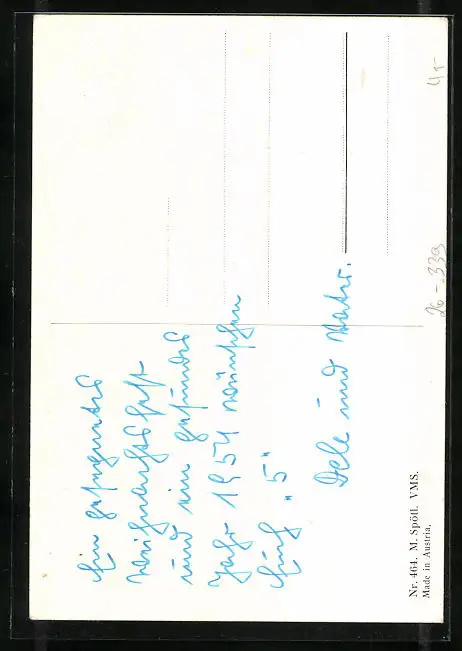 Ein gesegnetes
Weihnachtsfest
und ein gesundes
Jahr 1954 wünschen
Euch „5“
Dele und Walter.
Nr. 464. M. Spötl. VMS.
Made in Austria.
26-339